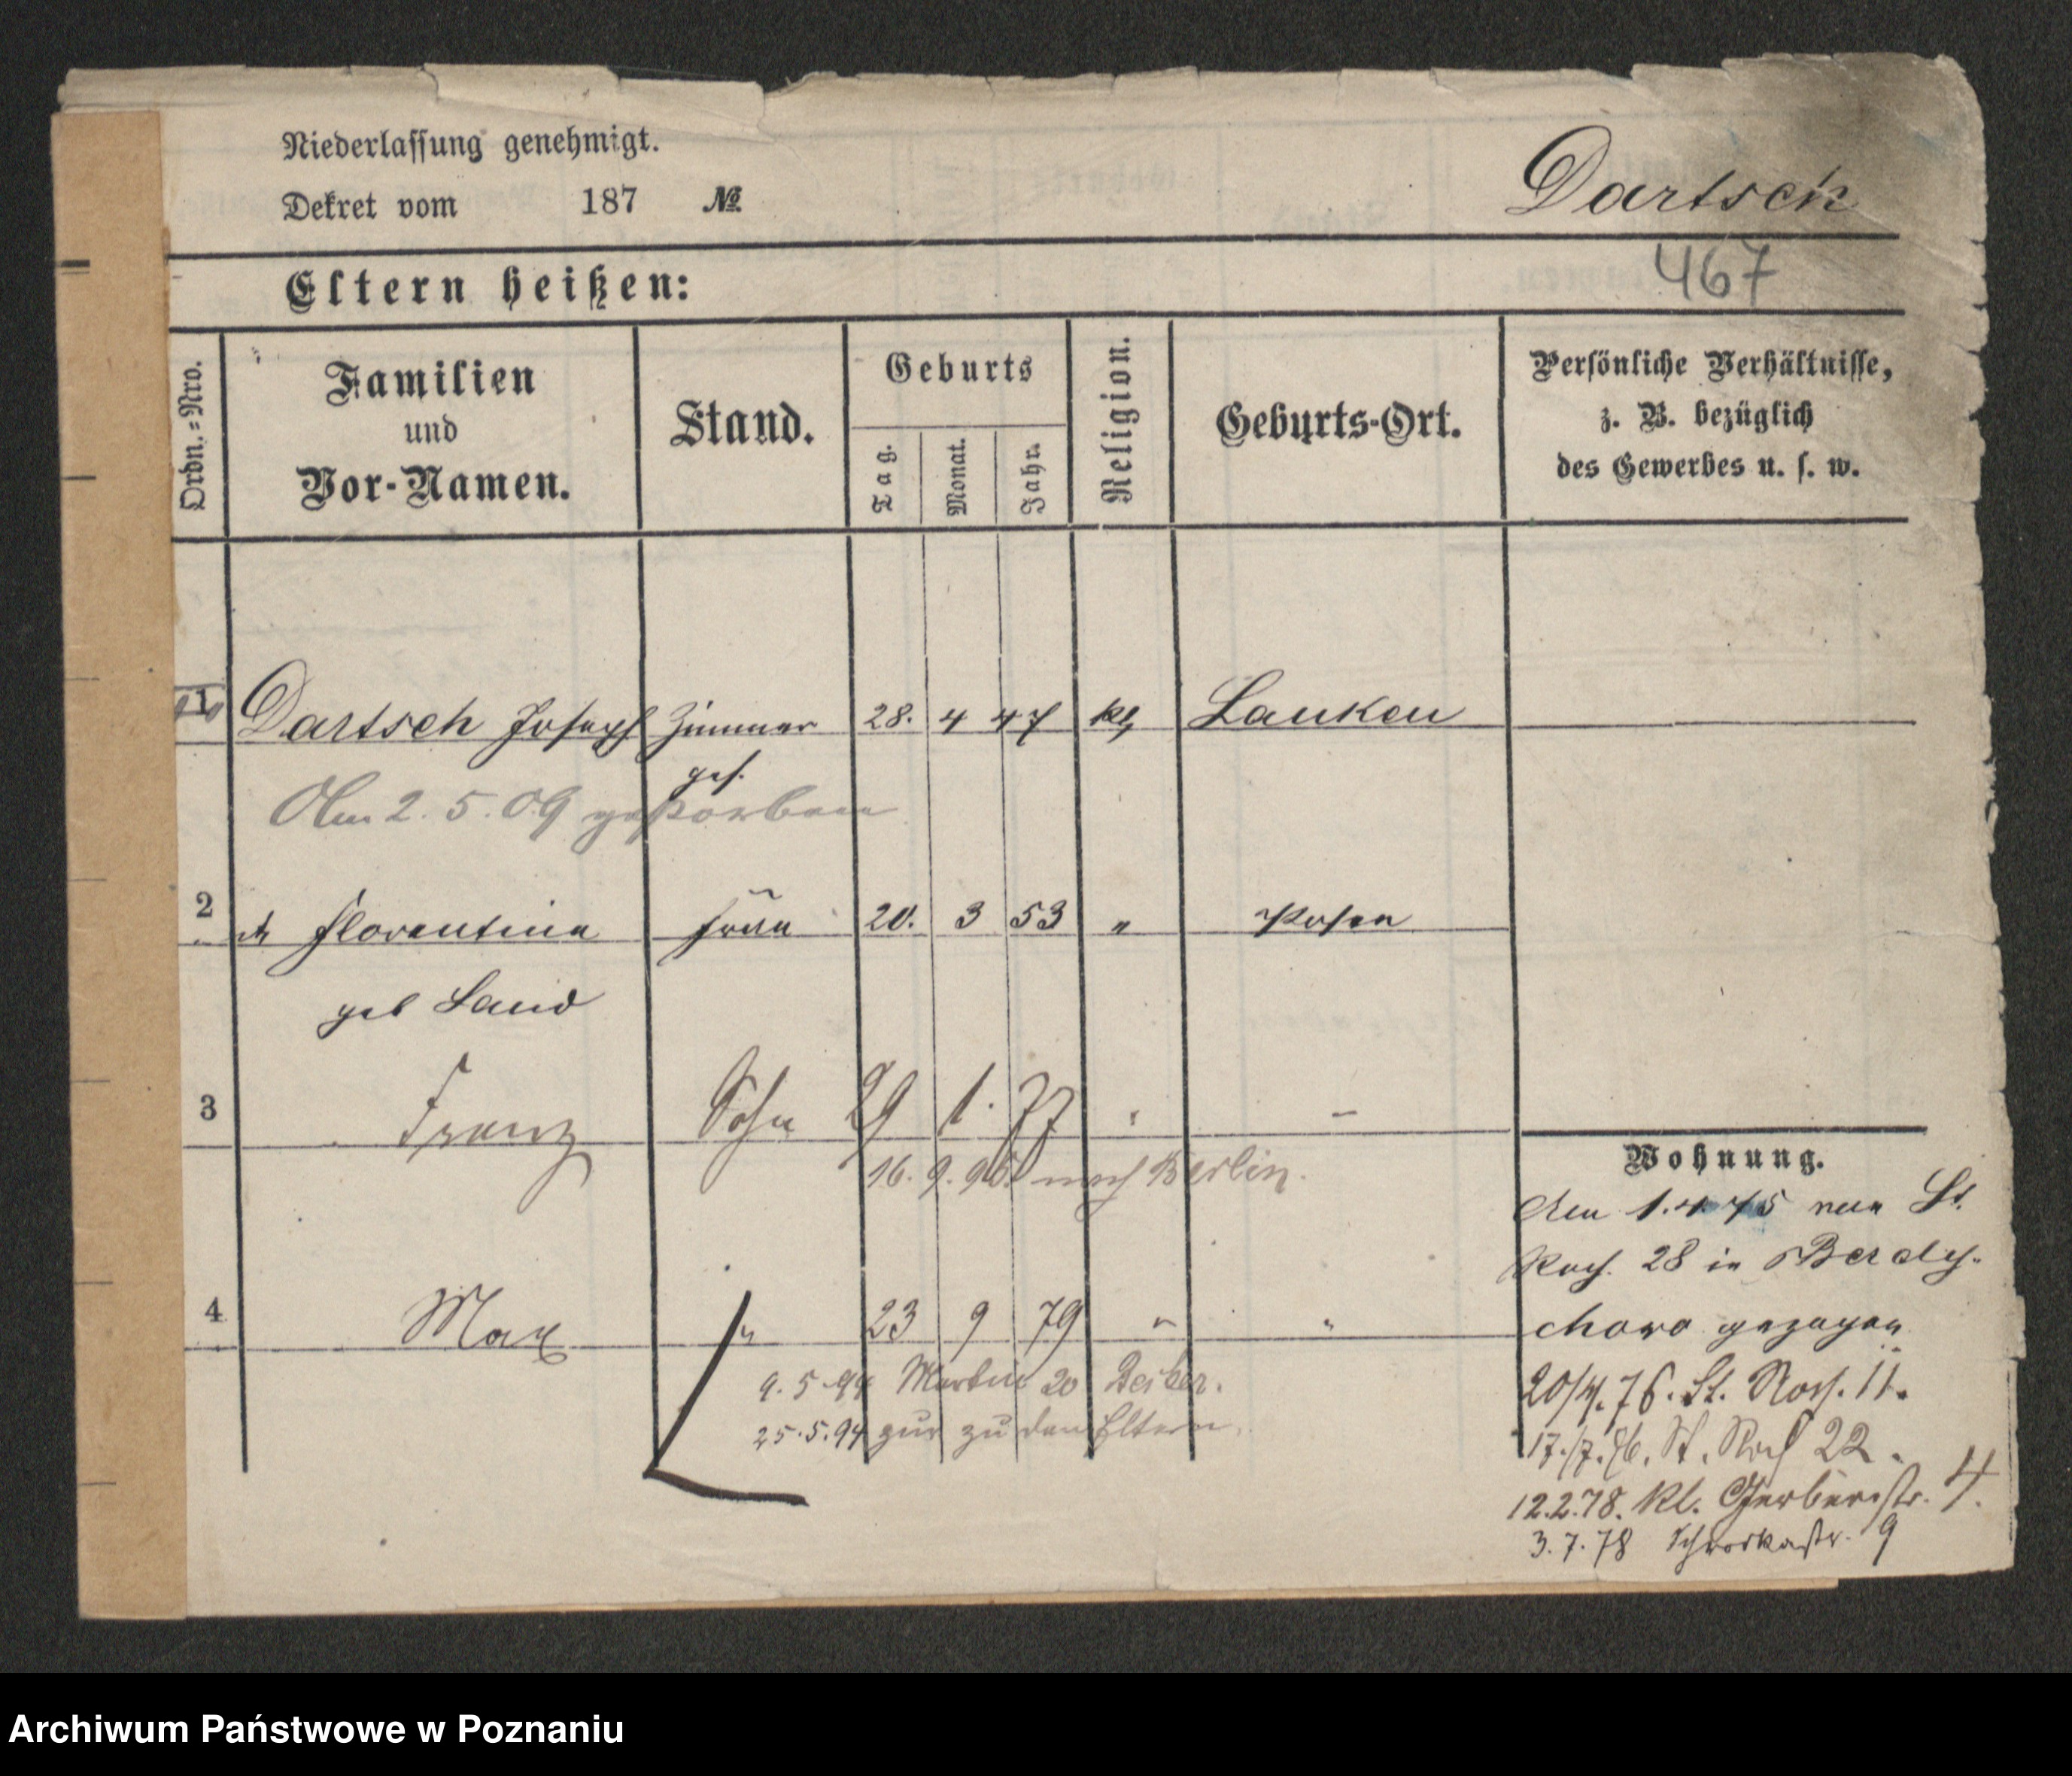 Niederlassung genehmigt.
Dekret vom 187 № Dartsch
467
Eltern heißen:
Ordn.-Nro.
Familien
und
Vor-Namen.
Stand.
Geburts
Tag.
Monat.
Jahr.
Religion.
Geburts-Ort.
Persönliche Verhältnisse,
z. B. bezüglich
des Gewerbes u. s. w.
1 Dartsch Joseph Zimmer 28. 4 47 Lauken
ges.
Am 2.5.09 gestorben
2 Florentina Frau 20. 3 53 " Posen
geb Land
3 Franz Sohn 29 1. 77 " –
16. 9. nach Berlin.
4 Max " 23 9 79 " "
9.5.94 Martin 20
25.5.94 zur zu den Eltern.
Wohnung.
Am 1.4.75 nach St.
Roch. 28 in Berdy-
chowo gezogen
20/4.76. St. Roch. 11.
17./7.76. St. Roch 22.
12.2.78. Kl. Gerberstr. 4.
3.7.78 Schrodkastr. 9
Archiwum Państwowe w Poznaniu